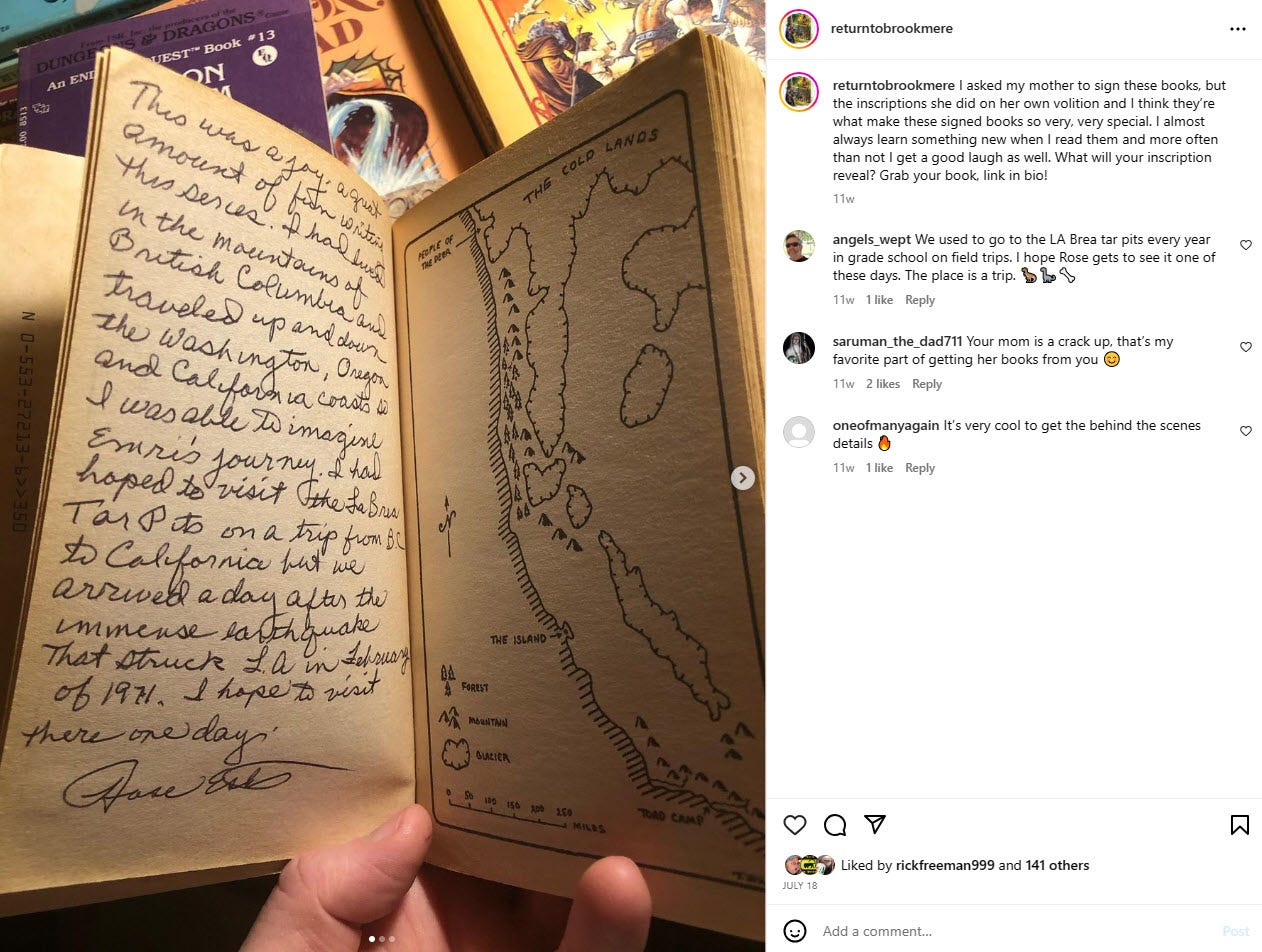 From TSR, Inc., the producers of the
DUNGEONS & DRAGONS® Game
An END QUEST™ Book #13
EQ
ON
M
AD
8513
This was a joy, a great
amount of fun writing
this series. I had lived
in the mountains of
British Columbia and
traveled up and down
the Washington, Oregon
and California coasts so
I was able to imagine
Emri's journey. I had
hoped to visit the La Brea
Tar Pits on a trip from B.C.
to California but we
arrived a day after the
immense earthquake
That struck L.A in February
of 1971. I hope to visit
there one day.
Rose Estes
THE COLD LANDS
PEOPLE OF
THE DEER
N
THE ISLAND
FOREST
MOUNTAIN
GLACIER
0 50 100 150 200 250
MILES
TOAD CAMP
N 0-553-27213-6>>350
returntobrookmere
returntobrookmere I asked my mother to sign these books, but
the inscriptions she did on her own volition and I think they're
what make these signed books so very, very special. I almost
always learn something new when I read them and more often
than not I get a good laugh as well. What will your inscription
reveal? Grab your book, link in bio!
11w
angels_wept We used to go to the LA Brea tar pits every year
in grade school on field trips. I hope Rose gets to see it one of
these days. The place is a trip. 🐅🦕🦴
11w 1 like Reply
saruman_the_dad711 Your mom is a crack up, that's my
favorite part of getting her books from you 😊
11w 2 likes Reply
oneofmanyagain It's very cool to get the behind the scenes
details 🔥
11w 1 like Reply
Liked by rickfreeman999 and 141 others
JULY 18
Add a comment...
Post